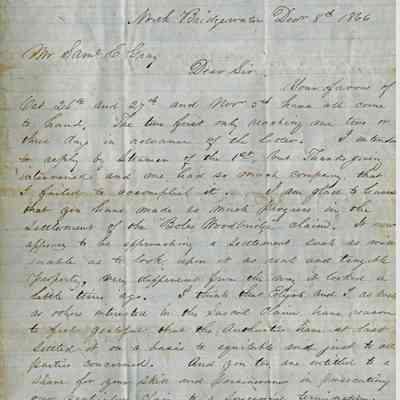 North Bridgewater Decr 8th 1866
Mr Saml E. Gray
Dear Sir.
Your favors of
Oct 26th and 27th and Nov 5th have all come
to hand. The two first only reaching me two or
three days in advance of the latter. I intended
to reply by Steamer of the 1st, but Thanksgiving
intervened and we had so much company, that
I failed to accomplish it. I am glad to learn
that you have made so much progress in the
settlement of the Boles Woodbridge claim. It now
appears to be approaching a settlement such as will
enable us to look upon it as real and tangible
property, very different from the way it looked a
little time ago. I think that and I as well
as others interested in the claim, have reason
to feel gratified that the Authorities have at last
settled it on a basis so equitable and just to all
parties concerned. And you too are entitled to a
share for your skill and perseverance in prosecuting
our claim to a successful termination.